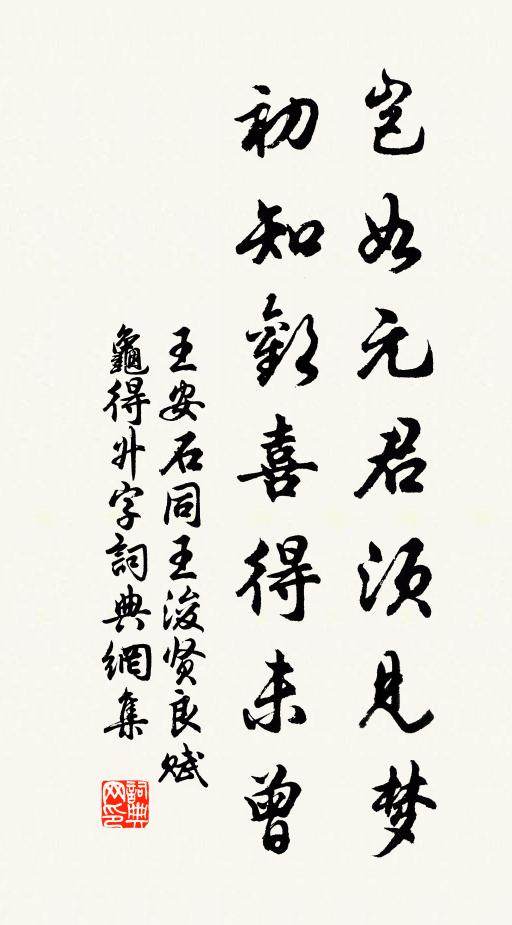 岂如元君须见梦
初知歡喜得未曾
王安石同王浚贤良赋
龜得升字詞典網集
詞典网印